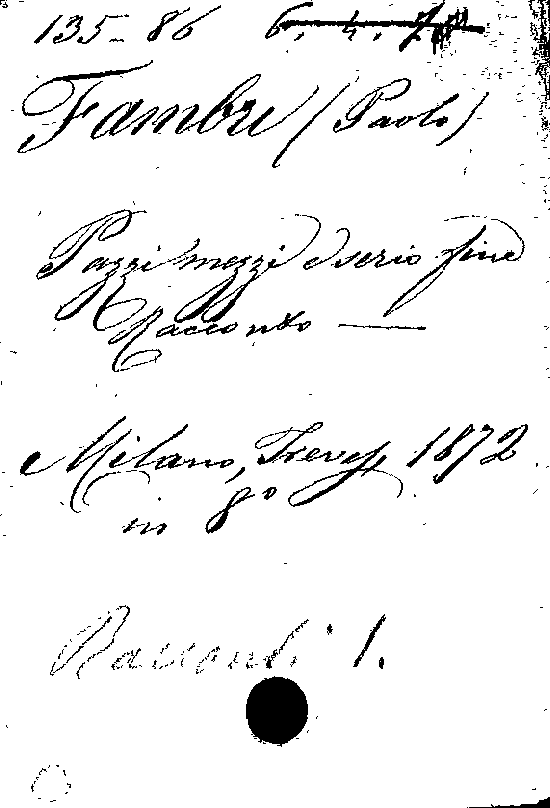 135-86 6. 4. 7
Fambri (Paolo)
Pazzi mezzi e serio fine
Racconto —
Milano, Treves, 1872
in 8º
Racconti 1.